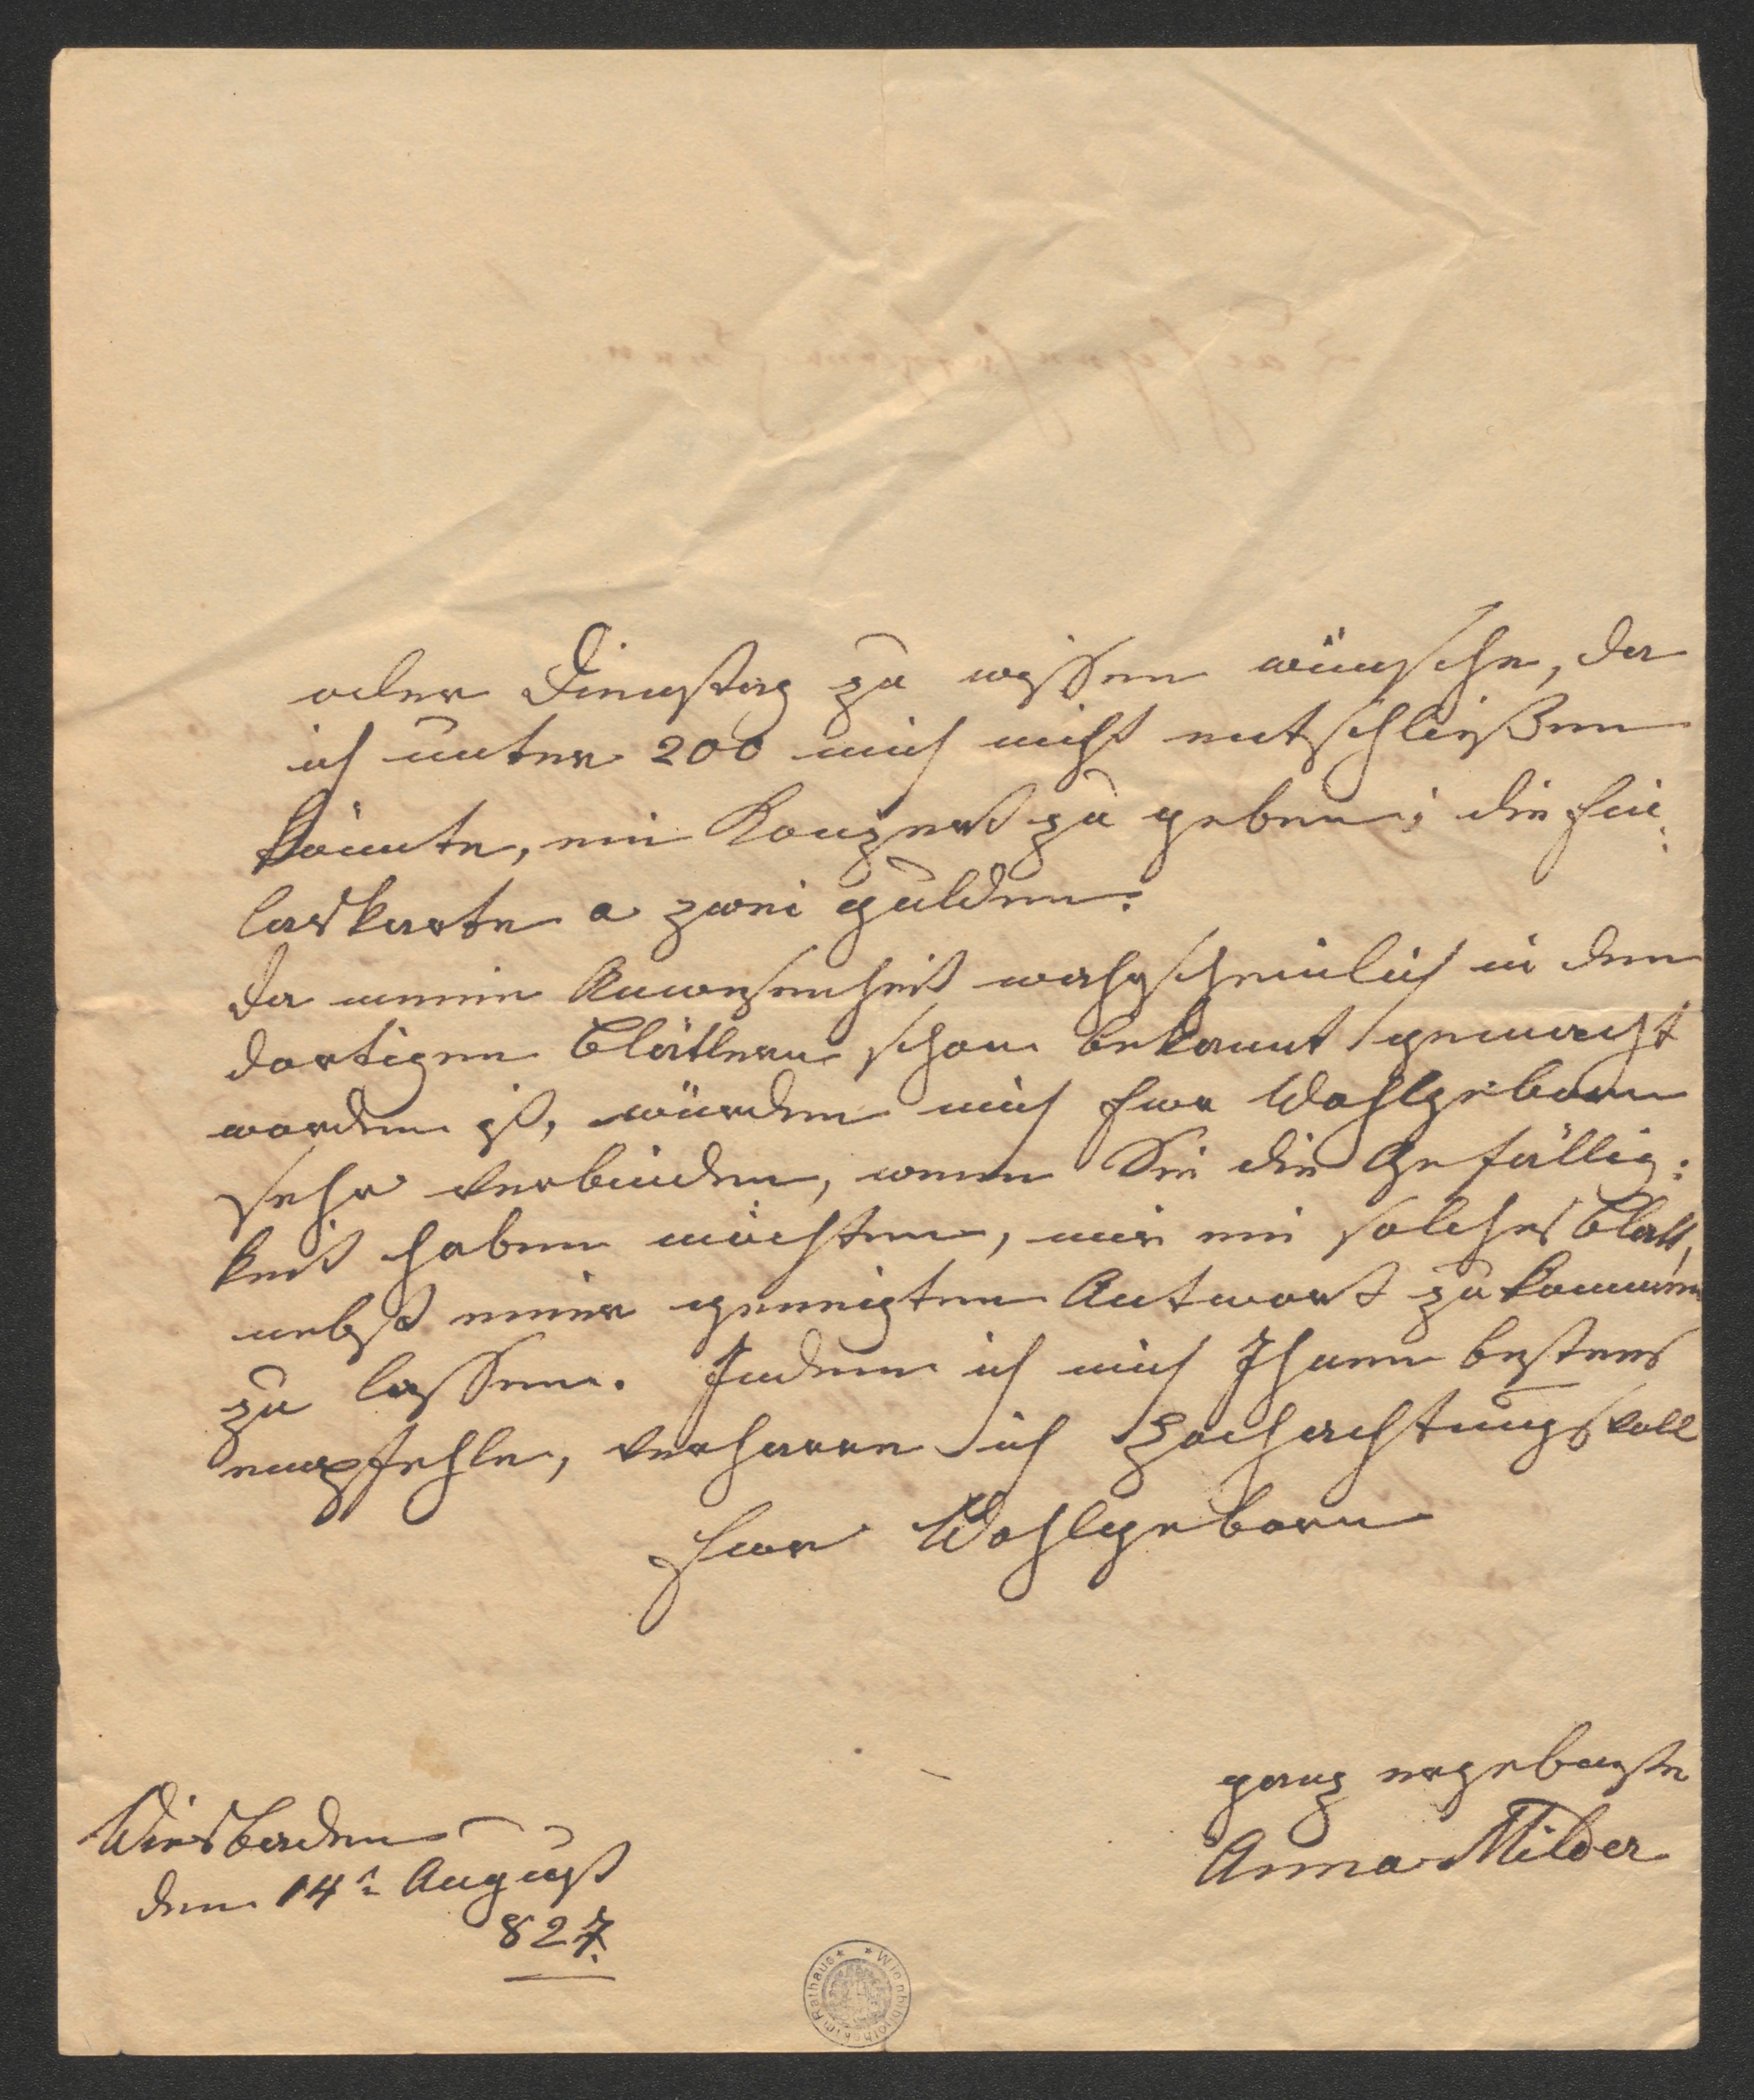 oder Dienstag zu wissen wünsche, da
ich unter 200 mich nicht entschließen
könnte, ein Konzert zu geben; die Ein:
laskarte a zwei gulden.
Da meine Anwesenheit wahrscheinlich in den
dortigen Blättern schon bekannt gemacht
worden ist, würden mich Euer Wohlgeborn
sehr verbinden, wenn Sie die Gefällig:
keit haben möchten, mir ein solches Blatt,
nebst einer geneigten Antwort zukommen
zu lassen. Indem ich mich Ihnen bestens
empfehle, verharre ich Hochachtungsvoll
Euer Wohlgeborn
ganz ergebenste
Anna Milder
Wiesbaden
den 14t August
827.
Wienbibliothek im Rathaus